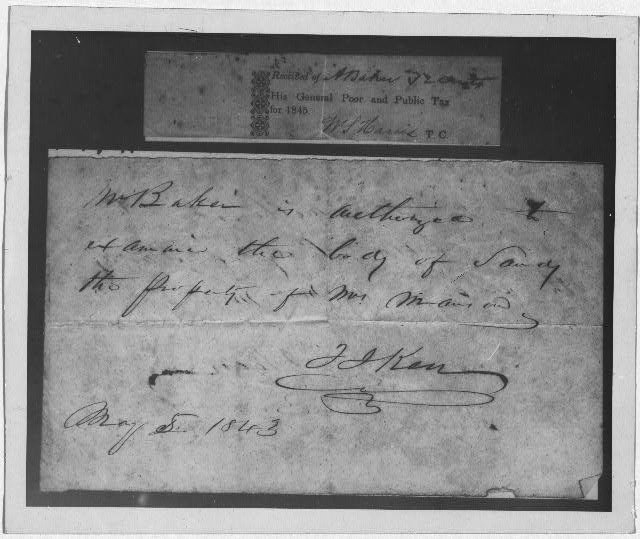 Received of A Baker
His General Poor and Public Tax
for 1845
T. C.
Mr Baker is authorized to
examine the body of Sandy
the property of Mrs
May 5 1843